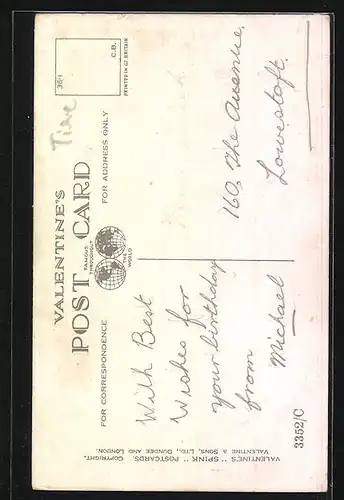 VALENTINE'S
POST CARD
FAMOUS THROUGHOUT
THE WORLD
FOR CORRESPONDENCE
FOR ADDRESS ONLY
36/1
C.B.
PRINTED IN GT. BRITAIN
With Best
Wishes for
your birthday
from
Michael
160, The Avenue,
Lowestoft.
3352/C
VALENTINE'S "SPINK" POSTCARDS. COPYRIGHT.
VALENTINE & SONS, LTD., DUNDEE AND LONDON.